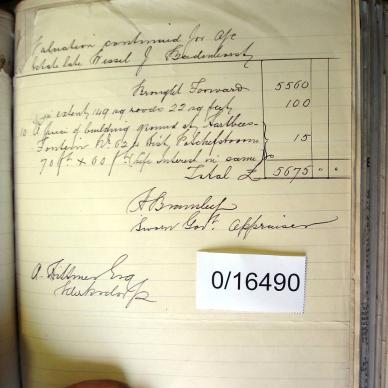 Valuation continued for a/c
Estate late Wessel J Badenhorst
Brought Forward 5560
in extent 149 sq roods 22 sq feet 100
10 A piece of building ground of Hartbees-
Fontein No 62 Dist Potchefstroom
70 ft × 60 ft life Interest in same 15
Total £ 5675 " "
A Bramley
Sworn Govt. Appraiser
0/16490
A. Esq
Klerksdorp